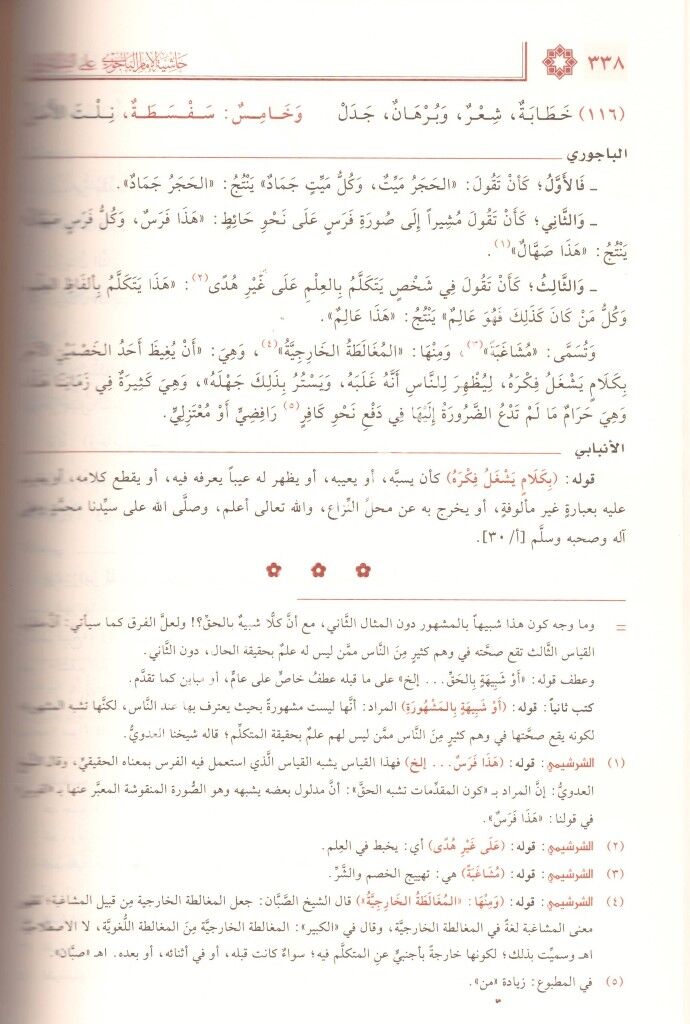 ٣٣٨
حاشية الإمام الباجوري على
(١١٦) خَطَابَةٌ، شِعْرٌ، وَبُرْهَانٌ، جَدَلْ وَخَامِسٌ: سَفْسَطَةٌ، نِلْتَ الأَمَلْ
الباجوري
ـ فَالأَوَّلُ؛ كَأَنْ تَقُولَ: «الحَجَرُ مَيِّتٌ، وَكُلُّ مَيِّتٍ جَمَادٌ» يَنْتُجُ: «الحَجَرُ جَمَادٌ».
ـ وَالثَّانِي؛ كَأَنْ تَقُولَ مُشِيراً إِلَى صُورَةِ فَرَسٍ عَلَى نَحْوِ حَائِطٍ: «هَذَا فَرَسٌ، وَكُلُّ فَرَسٍ صَهَّالٌ»
يَنْتُجُ: «هَذَا صَهَّالٌ»(١).
ـ وَالثَّالِثُ؛ كَأَنْ تَقُولَ فِي شَخْصٍ يَتَكَلَّمُ بِالعِلْمِ عَلَى غَيْرِ هُدًى(٢): «هَذَا يَتَكَلَّمُ بِأَلْفَاظِ العِلْمِ
وَكُلُّ مَنْ كَانَ كَذَلِكَ فَهُوَ عَالِمٌ» يَنْتُجُ: «هَذَا عَالِمٌ».
وَتُسَمَّى: «مُشَاغَبَةً»(٣)، وَمِنْهَا: «المُغَالَطَةُ الخَارِجِيَّةُ»(٤)، وَهِيَ: «أَنْ يُغِيظَ أَحَدُ الخَصْمَيْنِ
بِكَلَامٍ يَشْغَلُ فِكْرَهُ، لِيُظْهِرَ لِلنَّاسِ أَنَّهُ غَلَبَهُ، وَيَسْتُرُ بِذَلِكَ جَهْلَهُ»، وَهِيَ كَثِيرَةٌ فِي زَمَانِنَا
وَهِيَ حَرَامٌ مَا لَمْ تَدْعُ الضَّرُورَةُ إِلَيْهَا فِي دَفْعِ نَحْوِ كَافِرٍ(٥) رَافِضِيٍّ أَوْ مُعْتَزِلِيٍّ.
الأنبابي
قوله: (بِكَلَامٍ يَشْغَلُ فِكْرَهُ) كأن يسبَّه، أو يعيبه، أو يظهر له عيباً يعرفه فيه، أو يقطع كلامه، أو
عليه بعبارةٍ غير مألوفةٍ، أو يخرج به عن محلِّ النِّزاع، والله تعالى أعلم، وصلَّى الله على سيِّدنا محمَّدٍ وعلى
آله وصحبه وسلَّم [أ/٣٠].
= وما وجه كون هذا شبيهاً بالمشهور دون المثال الثَّاني، مع أنَّ كلًّا شبيهٌ بالحقِّ؟! ولعلَّ الفرق كما سيأتي: أنَّ
القياس الثَّالث تقع صحَّته في وهم كثيرٍ مِنَ النَّاس ممَّن ليس له علمٌ بحقيقة الحال، دون الثَّاني.
وعطف قوله: «أَوْ شَبِيهَةٍ بِالحَقِّ... إلخ» على ما قبله عطف خاصٍّ على عامٍّ، أو مباين كما تقدَّم.
كتب ثانياً: قوله: (أَوْ شَبِيهَةٍ بِالمَشْهُورَةِ) المراد: أنَّها ليست مشهورةً بحيث يعترف بها عند النَّاس، لكنَّها تشبه المشهورة
لكونه يقع صحَّتها في وهم كثيرٍ مِنَ النَّاس ممَّن ليس لهم علمٌ بحقيقة المتكلِّم؛ قاله شيخنا العدويُّ.
(١) الشرشيمي: قوله: (هَذَا فَرَسٌ... إلخ) فهذا القياس يشبه القياس الَّذي استعمل فيه الفرس بمعناه الحقيقيِّ، وقال الشَّيخ
العدويُّ: إنَّ المراد بـ «كون المقدِّمات تشبه الحقَّ»: أنَّ مدلول بعضه يشبهه وهو الصُّورة المنقوشة المعبَّر عنها بـ «الفرس»
في قولنا: «هَذَا فَرَسٌ».
(٢) الشرشيمي: قوله: (عَلَى غَيْرِ هُدًى) أي: يخبط في العلم.
(٣) الشرشيمي: قوله: (مُشَاغَبَةً) هي: تهييج الخصم والشَّرِّ.
(٤) الشرشيمي: قوله: (وَمِنْهَا: «المُغَالَطَةُ الخَارِجِيَّةُ») قال الشيخ الصَّبَّان: جعل المغالطة الخارجية مِن قبيل المشاغبة؛
معنى المشاغبة لغةً في المغالطة الخارجيَّة، وقال في «الكبير»: المغالطة الخارجيَّة مِنَ المغالطة اللُّغويَّة، لا الاصطلاحيَّة
اهـ وسمِّيت بذلك؛ لكونها خارجةً بأجنبيٍّ عن المتكلَّم فيه؛ سواءٌ كانت قبله، أو في أثنائه، أو بعده. اهـ «صبَّان».
(٥) في المطبوع: زيادة «من».